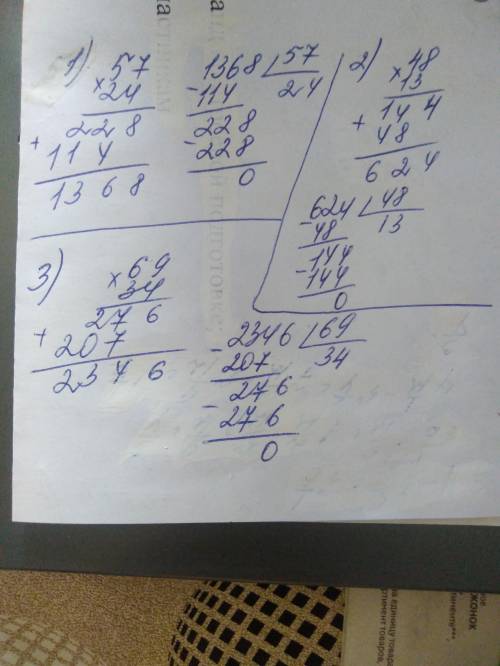 1) 57
× 24
228
+ 114
1368
1368 | 57
- 114 24
228
- 228
0
2) 48
× 13
144
+ 48
624
624 | 48
- 48 13
144
- 144
0
3) 69
× 34
276
+ 207
2346
2346 | 69
- 207 34
276
- 276
0
ЖОНОК
за единицу товара